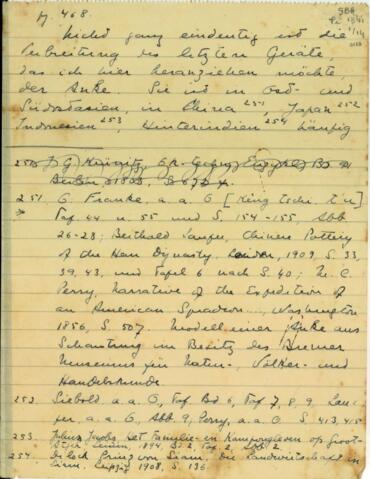 pg. 468.
Nicht ganz eindeutig ist die
Verbreitung des letzten Geräts,
das ich hier heranziehen möchte,
der Anke. Sie ist in Ost- und
Südostasien, in China 251, Japan 252
Indonesien 253, Hinterindien 254 häufig
251. O. Franke, a. a. O [Kêng tschi t'u]
Taf 44 u. 55 und S. 154-155, Abb
26-28; Berthold Laufer, Chinese Pottery
of the Han Dynasty, Leiden, 1909, S. 33,
39, 43, und Tafel 6 nach S. 40; M. C.
Perry, Narrative of the Expedition of
an American Squadron... Washington
1856, S. 507. Modell einer Anke aus
Schantung im Besitz des Bremer
Museums für Natur-, Völker- und
Handelskunde.
252. Siebold a. a. O, Taf Bd 6, Taf 7, 8, 9. Lau-
fer, a. a. O, Abb 9; Perry, a. a. O S. 413, 415
253. Julius Jacobs, Het Familie- en Kampongleven op Groot-
Atjeh. Leiden, 1894, Bd 2 Taf 2, Abb 2.
254. Dilock Prinz von Siam, Die Landwirtschaft in
Siam, Leipzig 1908, S. 136.